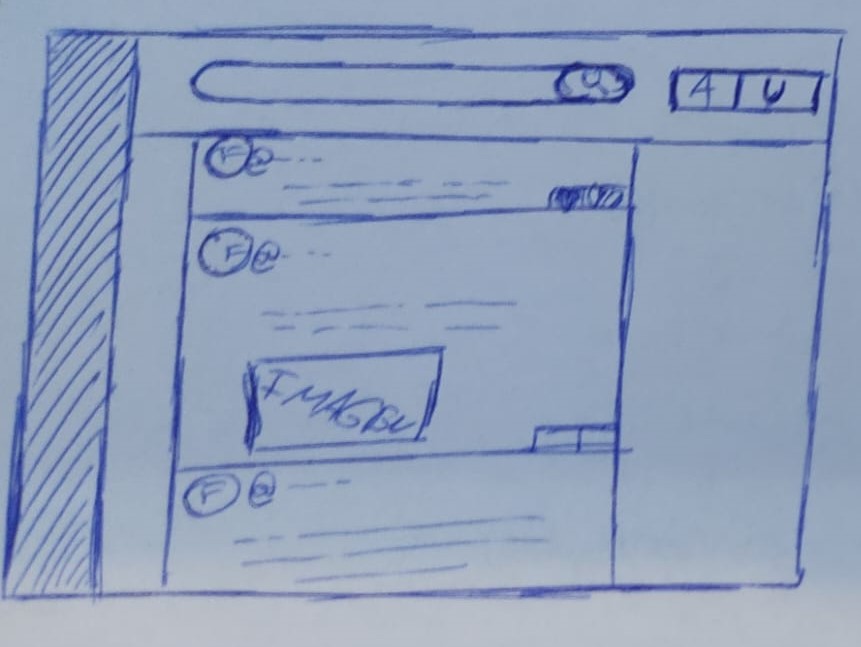 4 U
F @
F @
IMAGEN
F @